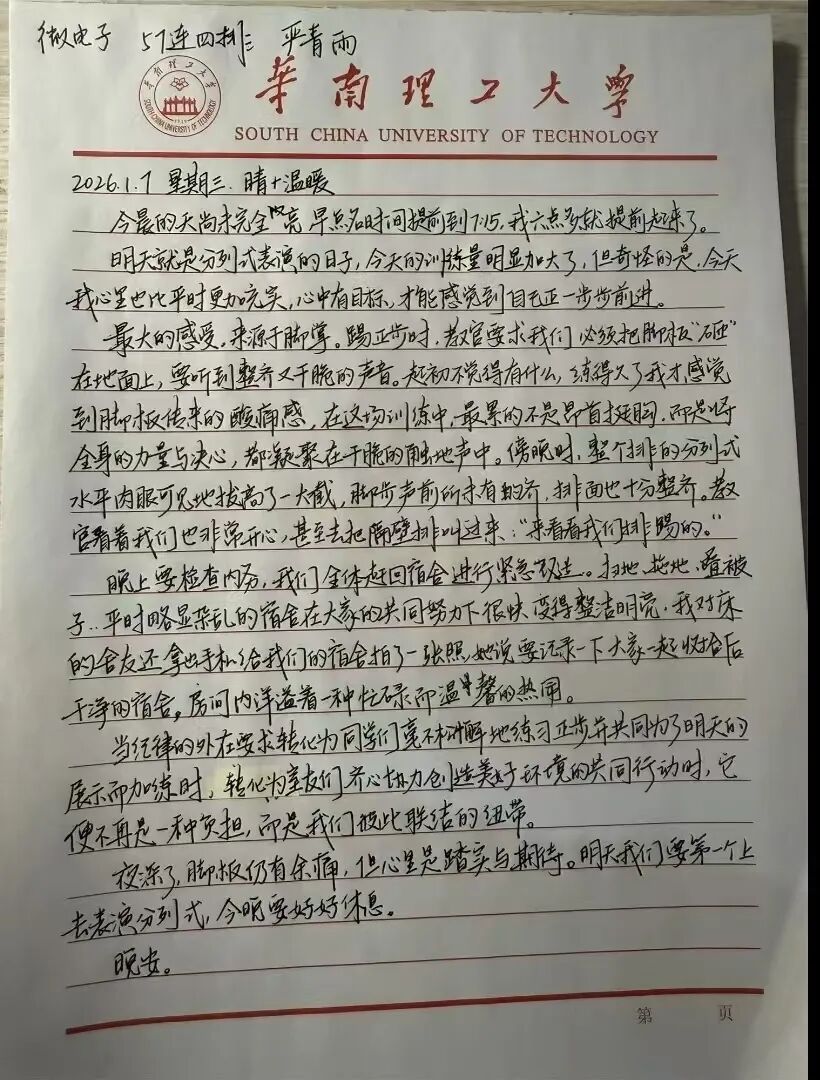 微电子 57连四排 严青雨
华南理工大学
SOUTH CHINA UNIVERSITY OF TECHNOLOGY
华南理工大学
SOUTH CHINA UNIVERSITY OF TECHNOLOGY
2026.1.7 星期三. 晴+温暖
今晨的天尚未完全亮 早点名时间提前到7:15,我六点多就提前起来了。
明天就是分列式表演的日子,今天的训练量明显加大了,但奇怪的是,今天
我心里也比平时更加充实,心中有目标,才能感觉到自己正一步步前进。
最大的感受,来源于脚掌。踢正步时,教官要求我们必须把脚板“砸”
在地面上,要听到整齐又干脆的声音。起初不觉得有什么,练得久了我才感觉
到脚板传来的酸痛感,在这场训练中,最累的不是昂首挺胸,而是将
全身的力量与决心,都凝聚在干脆的触地声中。傍晚时,整个排的分列式
水平肉眼可见地拔高了一大截,脚步声前所未有的齐,排面也十分整齐。教
官看着我们也非常开心,甚至去把隔壁排叫过来:“来看看我们排踢的。”
晚上要检查内务,我们全体赶回宿舍进行紧急。扫地、拖地、叠被
子..平时略显杂乱的宿舍在大家的共同努力下很快变得整洁明亮,我对床
的舍友还拿出手机给我们的宿舍拍了一张照,她说要记录一下大家一起收拾后
干净的宿舍。房间内洋溢着一种忙碌而温馨的热闹。
当纪律的外在要求转化为同学们毫不松懈地练习正步并共同为了明天的
展示而加练时,转化为室友们齐心协力创造美好环境的共同行动时,它
便不再是一种负担,而是我们彼此联结的纽带。
夜深了,脚板仍有余痛,但心里是踏实与期待。明天我们要第一个上
去表演分列式,今晚要好好休息。
晚安。
第 页